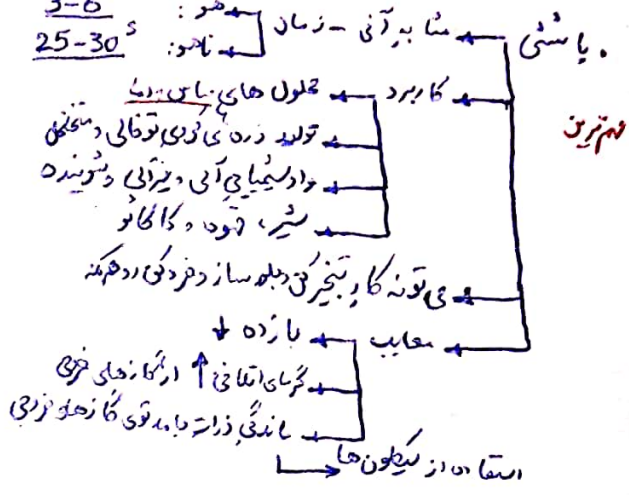 همسو: 3-6
• پاششی ← مشابه آنی - زمان
ناهمسو: 25-30 s
مهم‌ترین
کاربرد ← محلول های حساس به دما
تولید ذره های کروی توخالی و متخلخل
مواد شیمیایی آلی و معدنی و شوینده
شیر، قهوه و کاکائو
می تونه کار تبخیر کن و بلورساز و خردکن رو هم کنه
معایب ← بازده ↓
گرمای اتلافی ↑ از گازهای خروجی
ذرات جامد توی گازهای خروجی
استفاده از سیکلون ها